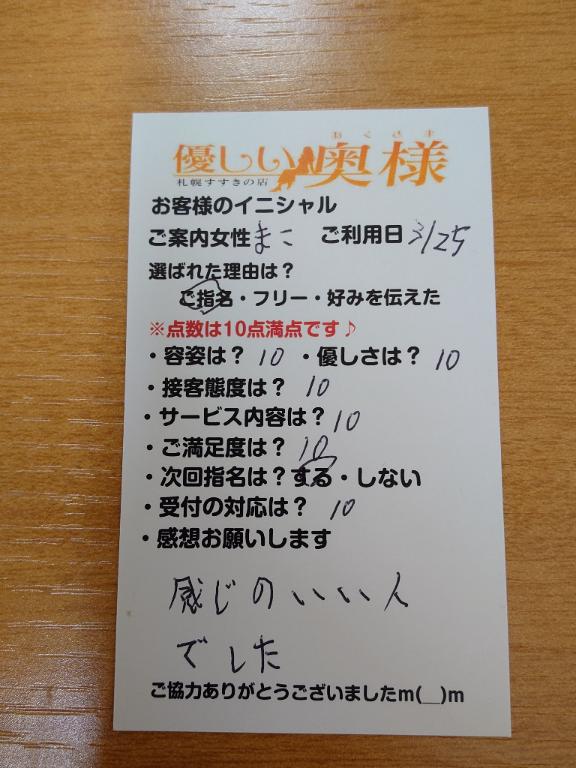 おくさま
優しい奥様
札幌すすきの店
お客様のイニシャル
ご案内女性 まこ ご利用日 3/25
選ばれた理由は？
ご指名・フリー・好みを伝えた
※点数は10点満点です♪
・容姿は？ 10 ・優しさは？ 10
・接客態度は？ 10
・サービス内容は？ 10
・ご満足度は？ 10
・次回指名は？する・しない
・受付の対応は？ 10
・感想お願いします
感じのいい人
でした
ご協力ありがとうございましたm(__)m